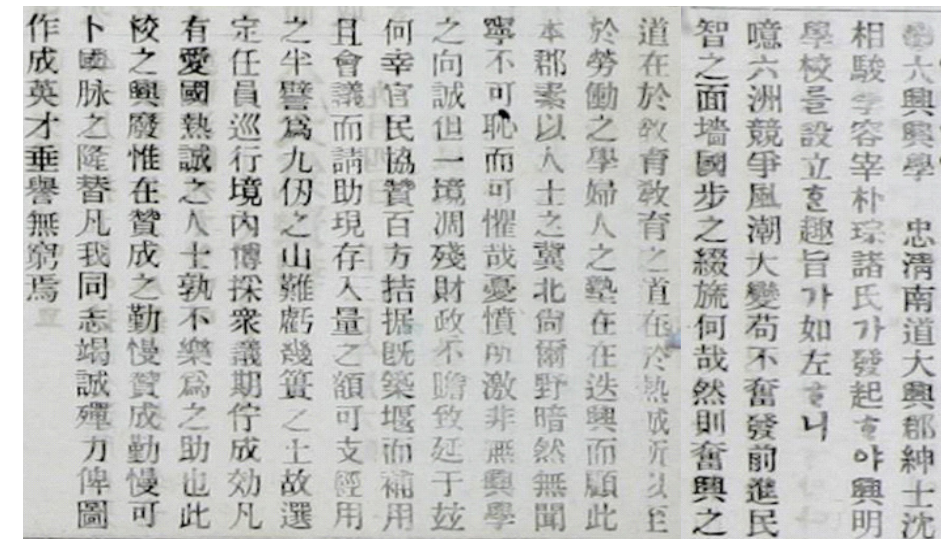 大興興學 忠淸南道大興郡紳士沈
相駿李容宰朴琮諸氏가發起ᄒᆞ야興明
學校를設立ᄒᆞᆫ趣旨가如左ᄒᆞ니
噫六洲競爭風潮大變苟不奮發前進民
智之面墻國步之綴旒何哉然則奮興之
道在於敎育敎育之道在於熱誠所以至
於勞働之學婦人之塾在在迭興而顧此
本郡素以人士之冀北尙爾野暗然無聞
寧不可恥而可懼哉憂憤所激非無興學
之向誠但一境凋殘財政不贍致延于玆
何幸官民協贊百方拮据旣築堰而補用
且會議而請助現存入量之額可支經用
之半譬爲九仞之山難虧幾簣之土故選
定任員巡行境內博採衆議期佇成効凡
有愛國熱誠之人士孰不樂爲之助也此
校之興廢惟在贊成之勤慢贊成勤慢可
卜國脉之隆替凡我同志竭誠殫力俾圖
作成英才垂譽無窮焉